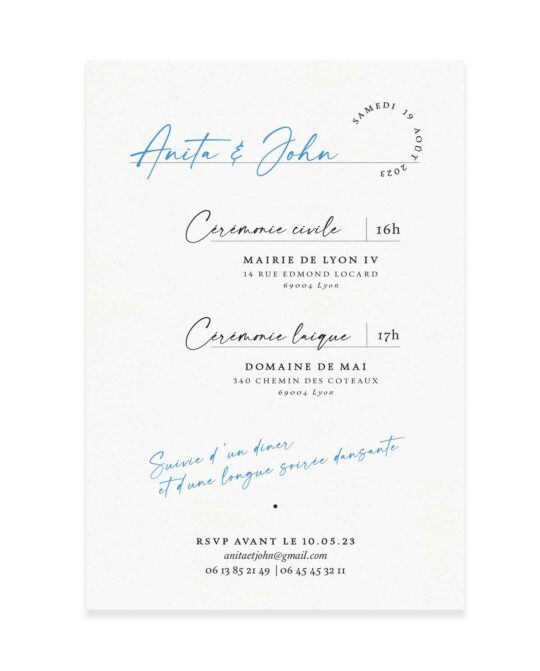 Anita & John
SAMEDI 19 AOÛT 2023
Cérémonie civile | 16h
MAIRIE DE LYON IV
14 RUE EDMOND LOCARD
69004 Lyon
Cérémonie laïque | 17h
DOMAINE DE MAI
340 CHEMIN DES COTEAUX
69004 Lyon
Suivie d'un dîner
et d'une longue soirée dansante
RSVP AVANT LE 10.05.23
anitaetjohn@gmail.com
06 13 85 21 49 | 06 45 45 32 11